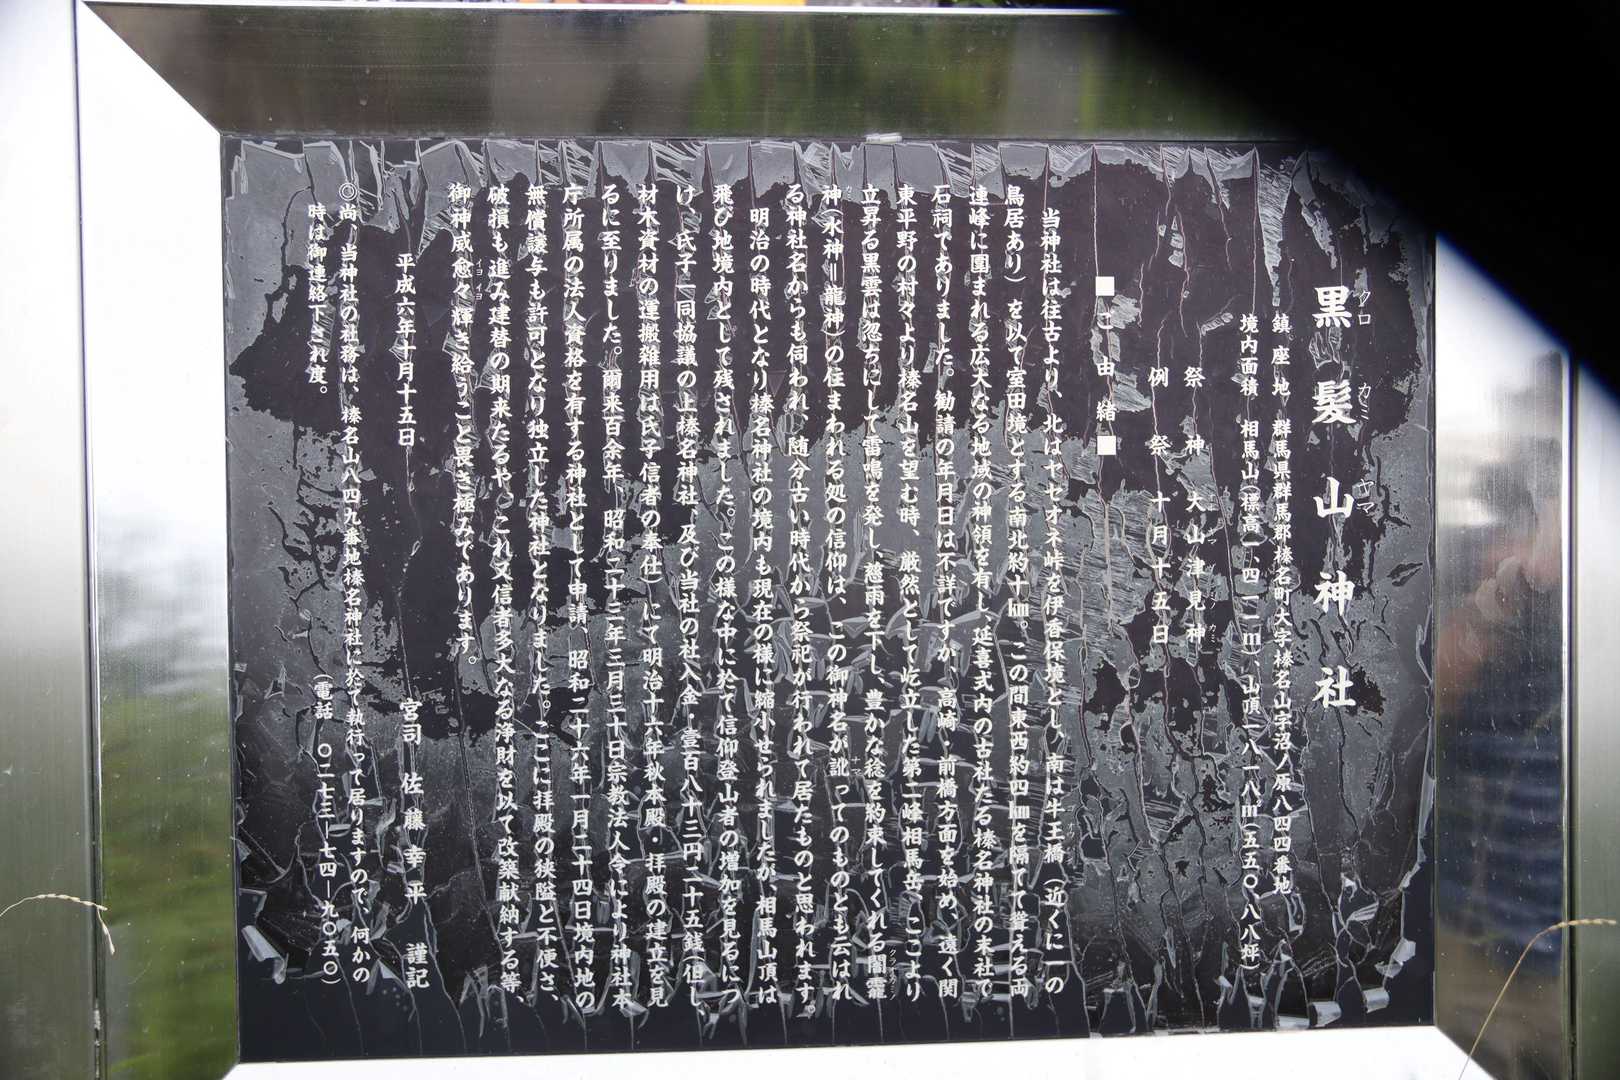 黒髪山神社
クロ カミ ヤマ
鎮座地 群馬県群馬郡榛名町大字榛名山字沼ノ原八四四番地
境内面積 相馬山(標高一四一一m)、山頂一八一八㎡(五五〇・八八坪)
祭神 大山津見神
例祭 十月十五日
■ご由緒■
当神社は往古より、北はヤセオネ峠を伊香保境とし、南は牛王橋(近くに一の
鳥居あり)を以て室田境とする南北約十㎞。この間東西約四㎞を隔てて聳える両
連峰に囲まれる広大なる地域の神領を有し、延喜式内の古社たる榛名神社の末社で
石祠でありました。勧請の年月日は不詳ですが、高崎・前橋方面を始め、遠く関
東平野の村々より榛名山を望む時、厳然として屹立した第二峰相馬岳、ここより
立昇る黒雲は忽ちにして雷鳴を発し、慈雨を下し、豊かな稔を約束してくれる闇龗
神(水神=龍神)の住まわれる処の信仰は、この御神名が訛ってのものとも云はれ
る神社名からも伺われ、随分古い時代から祭祀が行われて居たものと思われます。
明治の時代となり榛名神社の境内も現在の様に縮小せられましたが、相馬山頂は
飛び地境内として残されました。この様な中に於て信仰登山者の増加を見るにつ
け、氏子一同協議の上榛名神社、及び当社の社入金・壹百八十三円二十五銭(但し
材木資材の運搬雑用は氏子信者の奉仕)にて明治十六年秋本殿・拝殿の建立を見
るに至りました。爾来百余年、昭和二十三年三月三十日宗教法人令により神社本
庁所属の法人資格を有する神社として申請、昭和二十六年一月二十四日境内地の
無償譲与も許可となり独立した神社となりました。ここに拝殿の狭隘と不便さ、
破損も進み建替の期来たるや、これ又信者多大なる浄財を以て改築献納する等、
御神威愈々輝き給うこと畏き極みであります。
平成六年十月十五日
宮司 佐藤幸平 謹記
◎尚、当神社の社務は、榛名山八四九番地榛名神社に於て執行って居りますので、何かの
時は御連絡下され度。 (電話 〇二七三―七四―九〇五〇)